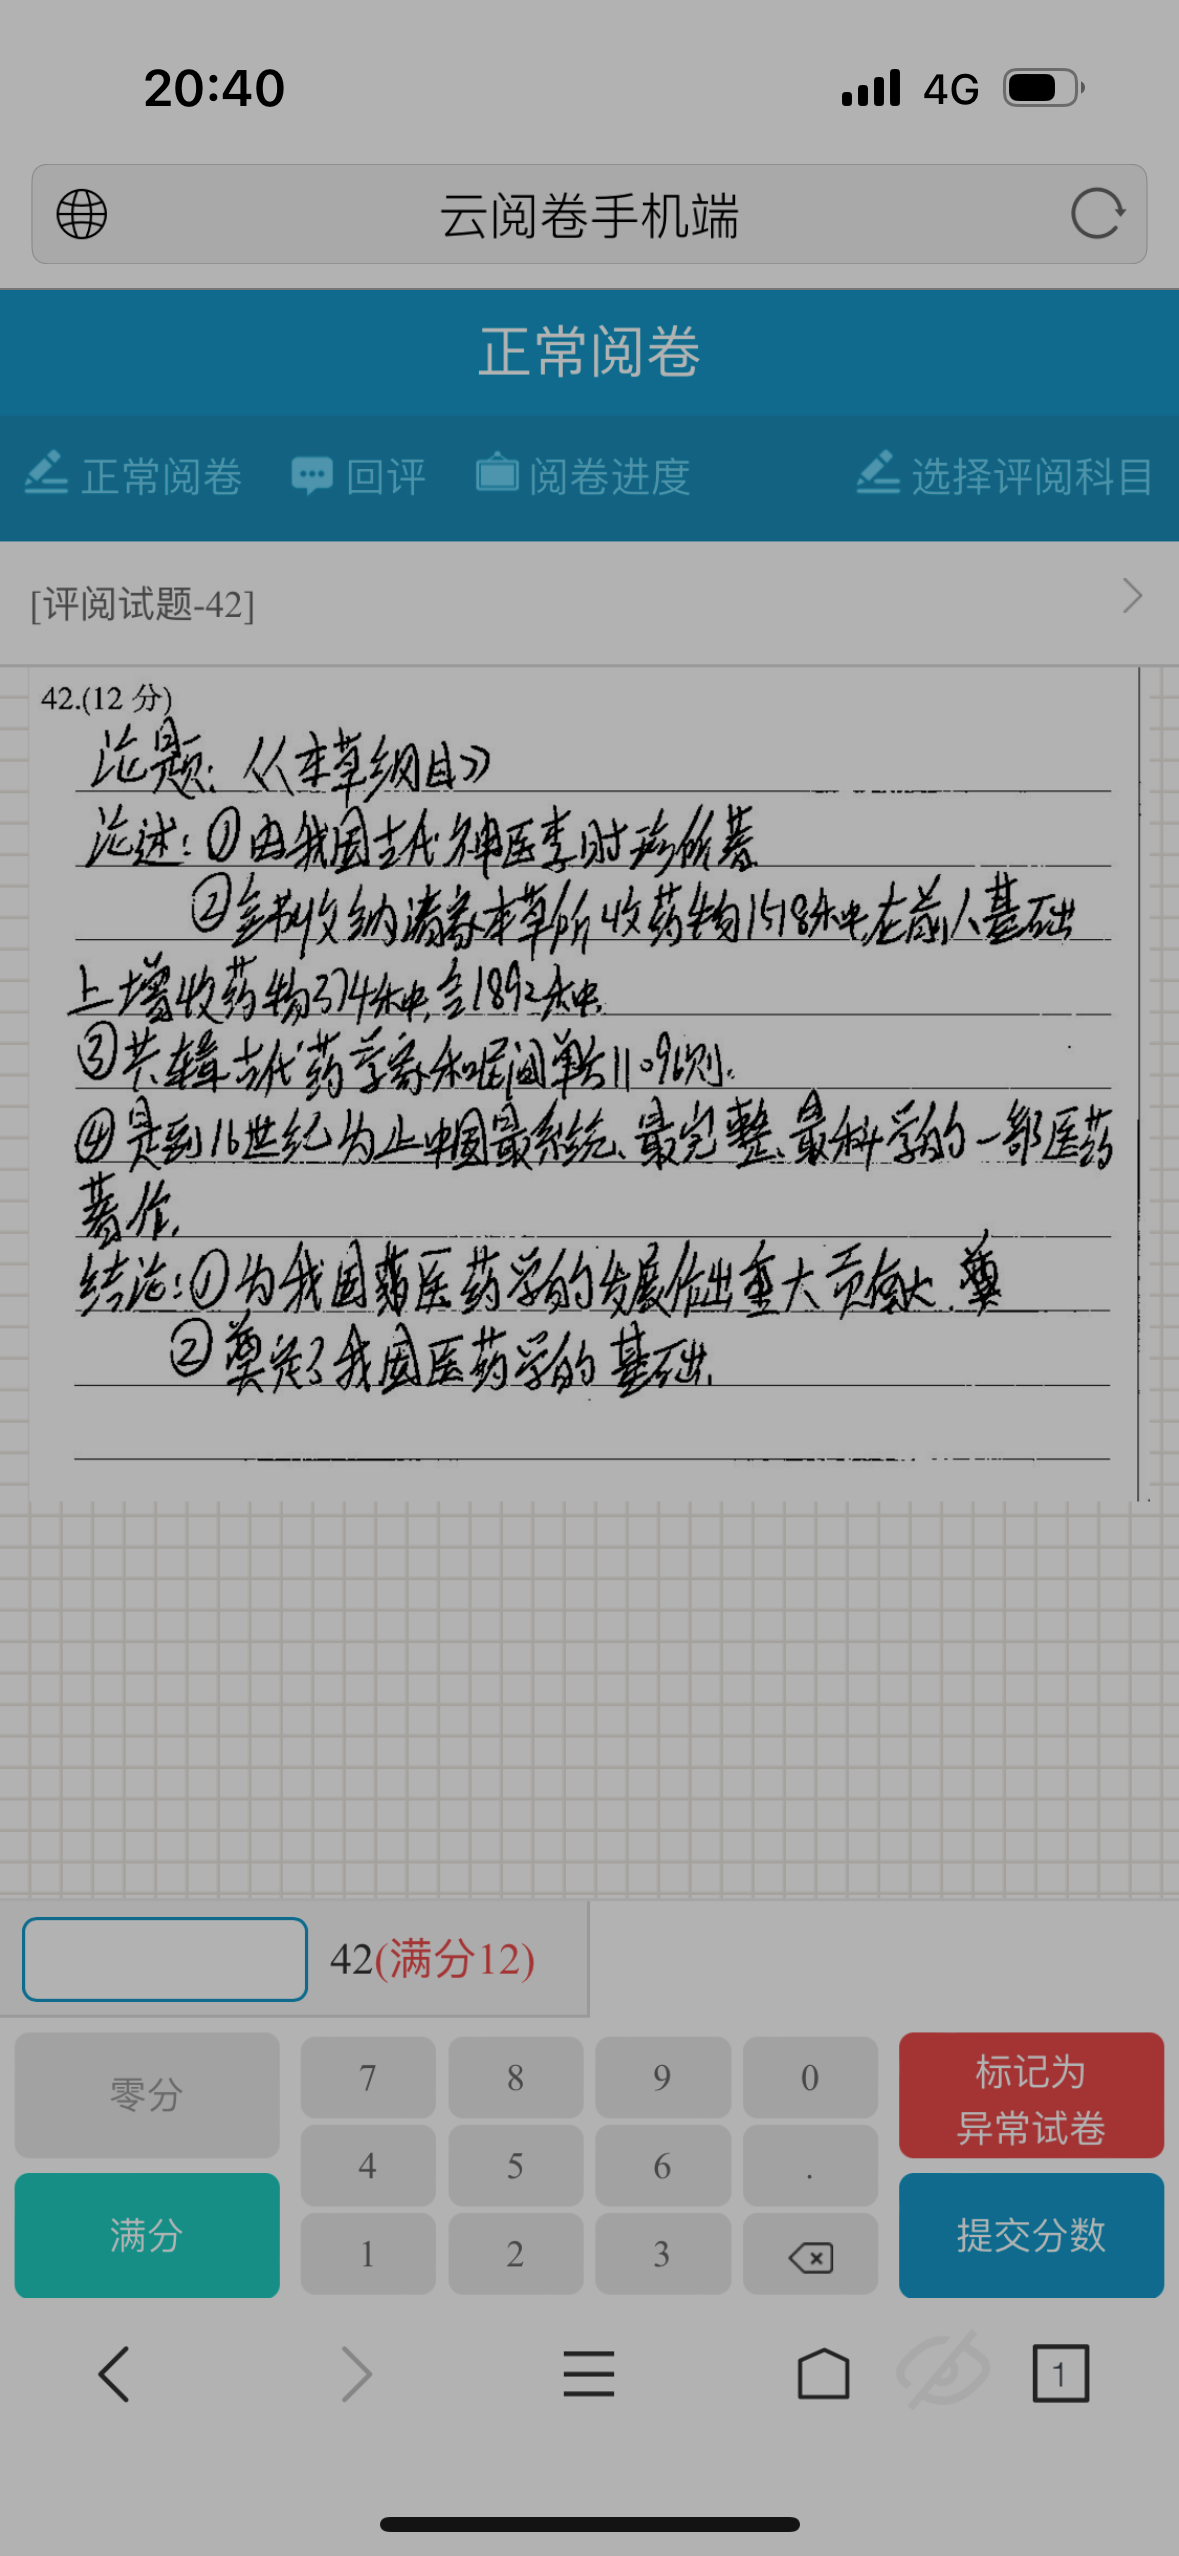 20:40
4G
云阅卷手机端
正常阅卷
正常阅卷 回评 阅卷进度 选择评阅科目
[评阅试题-42]
42.(12 分)
论题:《本草纲目》
论述:①由我国古代神医李时珍所著
②全书收纳诸家本草所收药物1518种,在前人基础
上增收药物374种,合1892种.
③共辑古代药学家和民间单方11096则.
④是到16世纪为止中国最系统、最完整、最科学的一部医药
著作.
结论:①为我国医药学的发展作出重大贡献.奠
②奠定了我国医药学的基础.
42(满分12)
零分
7 8 9 0
标记为
异常试卷
4 5 6 .
满分
1 2 3
提交分数
1